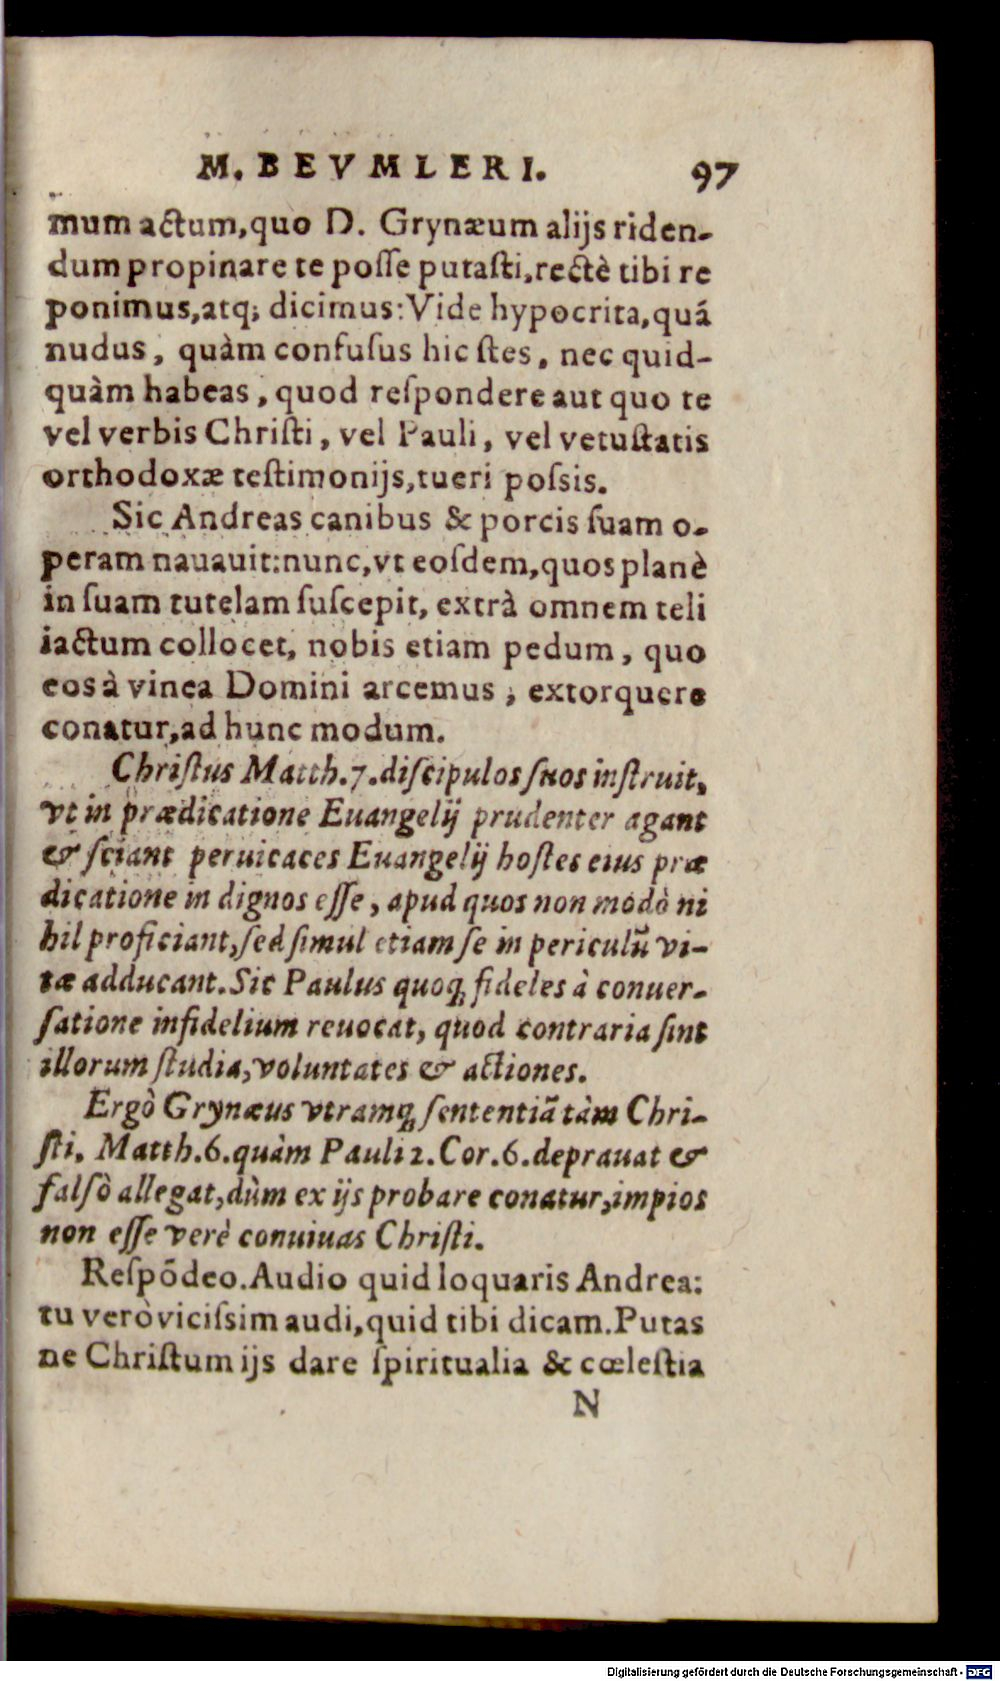 M. BEVMLERI. 97
mum actum, quo D. Grynæum alijs riden-
dum propinare te poſſe putaſti, rectè tibi re
ponimus, atq; dicimus: Vide hypocrita, quá
nudus, quàm confuſus hic ſtes, nec quid-
quàm habeas, quod reſpondere aut quo te
vel verbis Chriſti, vel Pauli, vel vetuſtatis
orthodoxæ teſtimonijs, tueri poſsis.
Sic Andreas canibus & porcis ſuam o-
peram nauauit: nunc, vt eoſdem, quos planè
in ſuam tutelam ſuſcepit, extrà omnem teli
iactum collocet, nobis etiam pedum, quo
eos à vinea Domini arcemus, extorquere
conatur, ad hunc modum.
Chriſtus Matth. 7. diſcipulos ſuos inſtruit,
vt in prædicatione Euangelij prudenter agant
& ſciant peruicaces Euangelij hoſtes eius præ
dicatione in dignos eſſe, apud quos non modò ni
hil proficiant, ſed ſimul etiam ſe in periculũ vi-
tæ adducant. Sic Paulus quoq; fideles à conuer-
ſatione infidelium reuocat, quod contraria ſint
illorum ſtudia, voluntates & actiones.
Ergò Grynæus vtramq; ſententiã tàm Chri-
ſti, Matth. 6. quàm Pauli 2. Cor. 6. deprauat &
falſò allegat, dùm ex ijs probare conatur, impios
non eſſe verè conuiuas Chriſti.
Reſpōdeo. Audio quid loquaris Andrea:
tu verò viciſsim audi, quid tibi dicam. Putas
ne Chriſtum ijs dare ſpiritualia & cœleſtia
N
Digitalisierung gefördert durch die Deutsche Forschungsgemeinschaft - DFG